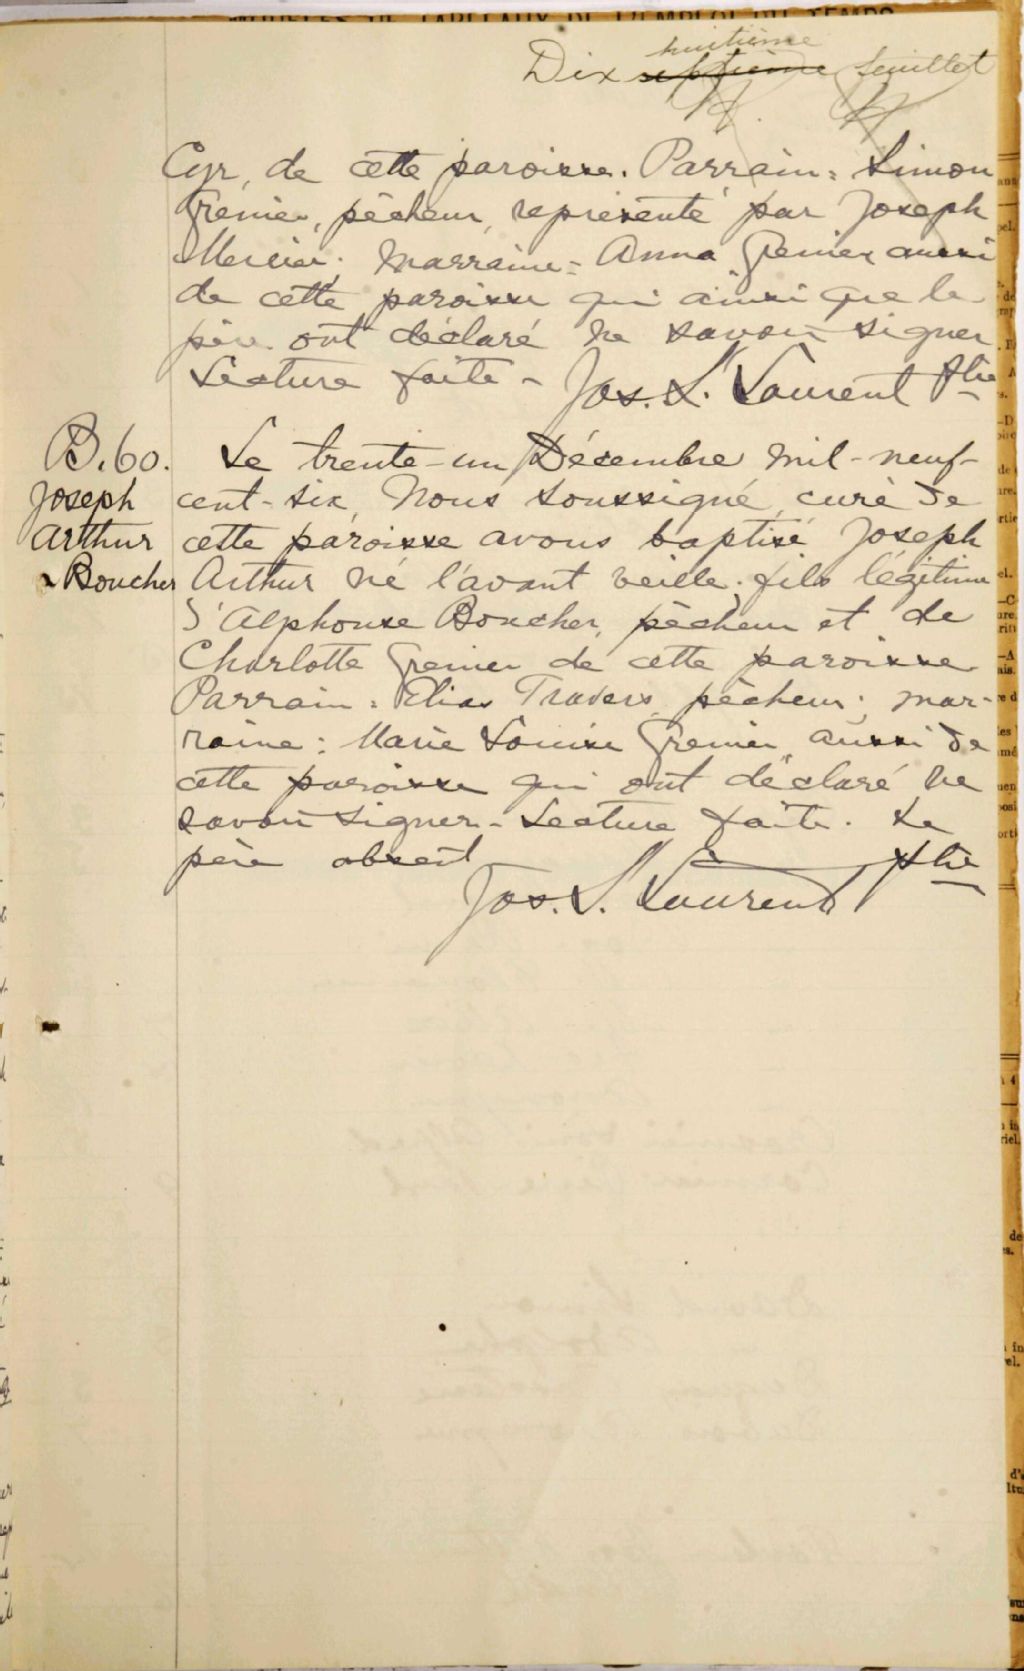 Dix septième huitième feuillet
Cyr, de cette paroisse. Parrain: Simon
Grenier, pêcheur, représenté par Joseph
Mercier; Marraine: Anna Grenier aussi
de cette paroisse qui ainsi que le
père ont déclaré ne savoir signer
Lecture faite - Jos. L. Laurent Ptre
B. 60.
Joseph
Arthur
Boucher
Le trente-un Décembre mil-neuf-
cent-six, Nous soussigné, curé de
cette paroisse avons baptisé Joseph
Arthur né l'avant veille, fils légitime
d'Alphonse Boucher, pêcheur et de
Charlotte Grenier de cette paroisse
Parrain: Elias Travers, pêcheur; mar-
raine: Marie Louise Grenier, aussi de
cette paroisse qui ont déclaré ne
savoir signer - Lecture faite. Le
père absent
Jos. L. Laurent Ptre